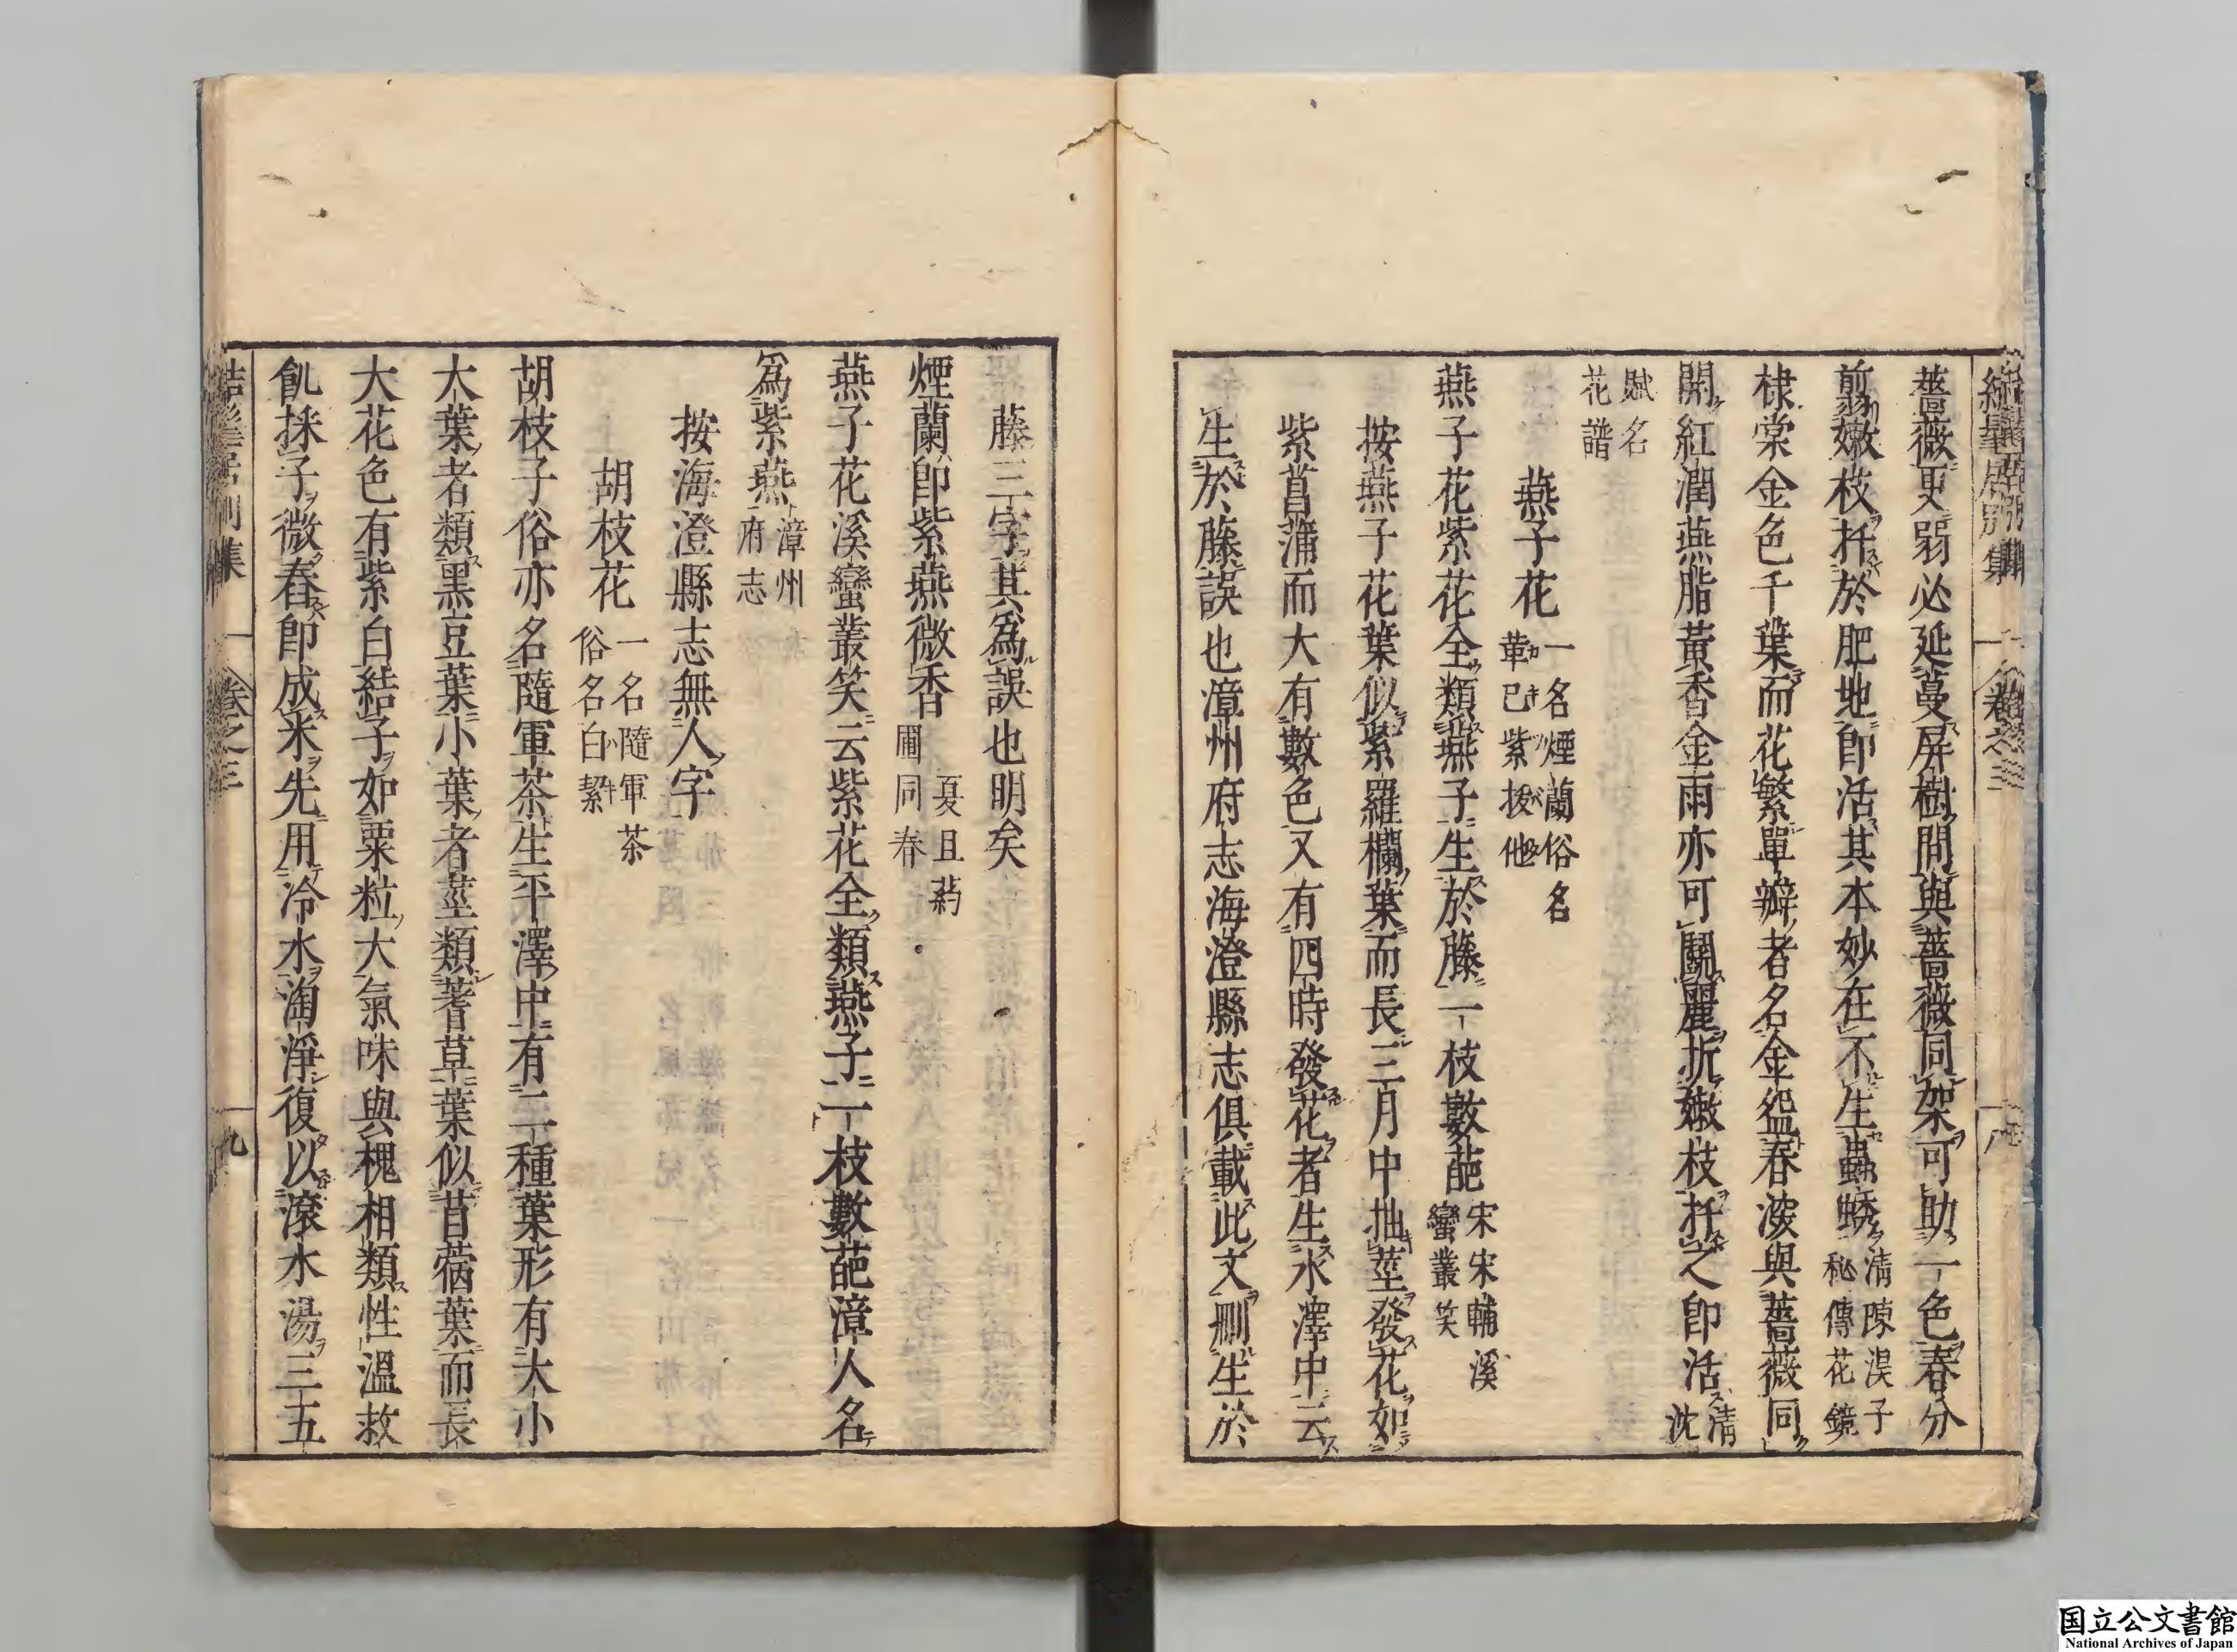 薔薇更弱必延蔓屏樹間與薔薇同架可助一色春分
剪嫩枝扦於肥地卽活其本妙在不生蟲蜏 清陳淏子 秘傳花鏡
棣棠金色千葉而花繁單瓣者名金盌春深與薔薇同
開紅潤燕脂黃香金雨亦可鬪麗折嫩枝扦之卽活 清沈
賦名 花譜
燕子花 一名煙蘭俗名 華己紫拨他
燕子花紫花全類燕子生於藤一枝數葩 宋宋輔溪 蠻叢笑
按燕子花葉似紫羅欄葉而長三月中抽莖發花如
紫菖蒲而大有數色又有四時發花者生水澤中云
生於藤誤也漳州府志海澄縣志俱載此文刪生於
藤三字其爲誤也明矣
煙蘭卽紫燕微香 夏且葯 圃同春
燕子花溪蠻叢笑云紫花全類燕子一枝數葩漳人名
爲紫燕 漳州 府志
按海澄縣志無人字
胡枝花 一名隨軍茶 俗名白絜
胡枝子俗亦名隨軍茶生平澤中有二種葉形有大小
大葉者類黑豆葉小葉者莖類蓍草葉似苜蓿葉而長
大花色有紫白結子如粟粒大氣味與槐相類性溫救
飢採子微舂卽成米先用冷水淘淨復以滾水湯三五
卷之三
九
国立公文書館
National Archives of Japan